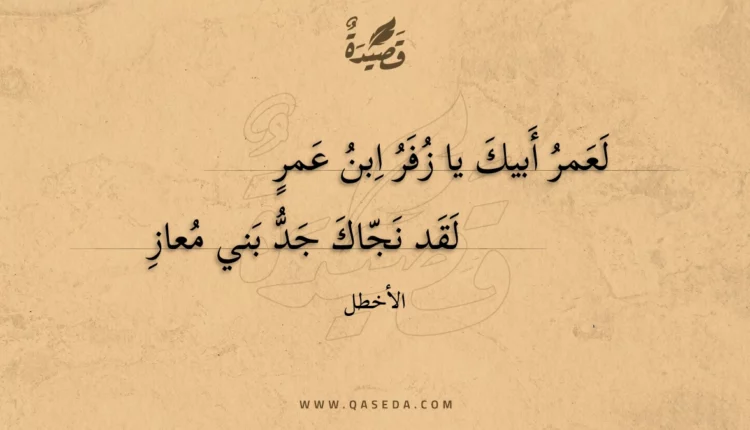 قَصِيْدَةٌ
لَعَمرُ أَبيكَ يا زُفَرُ اِبنُ عَمرٍ
لَقَد نَجّاكَ جَدُّ بَني مُعازِ
الأخطل
WWW.QASEDA.COM